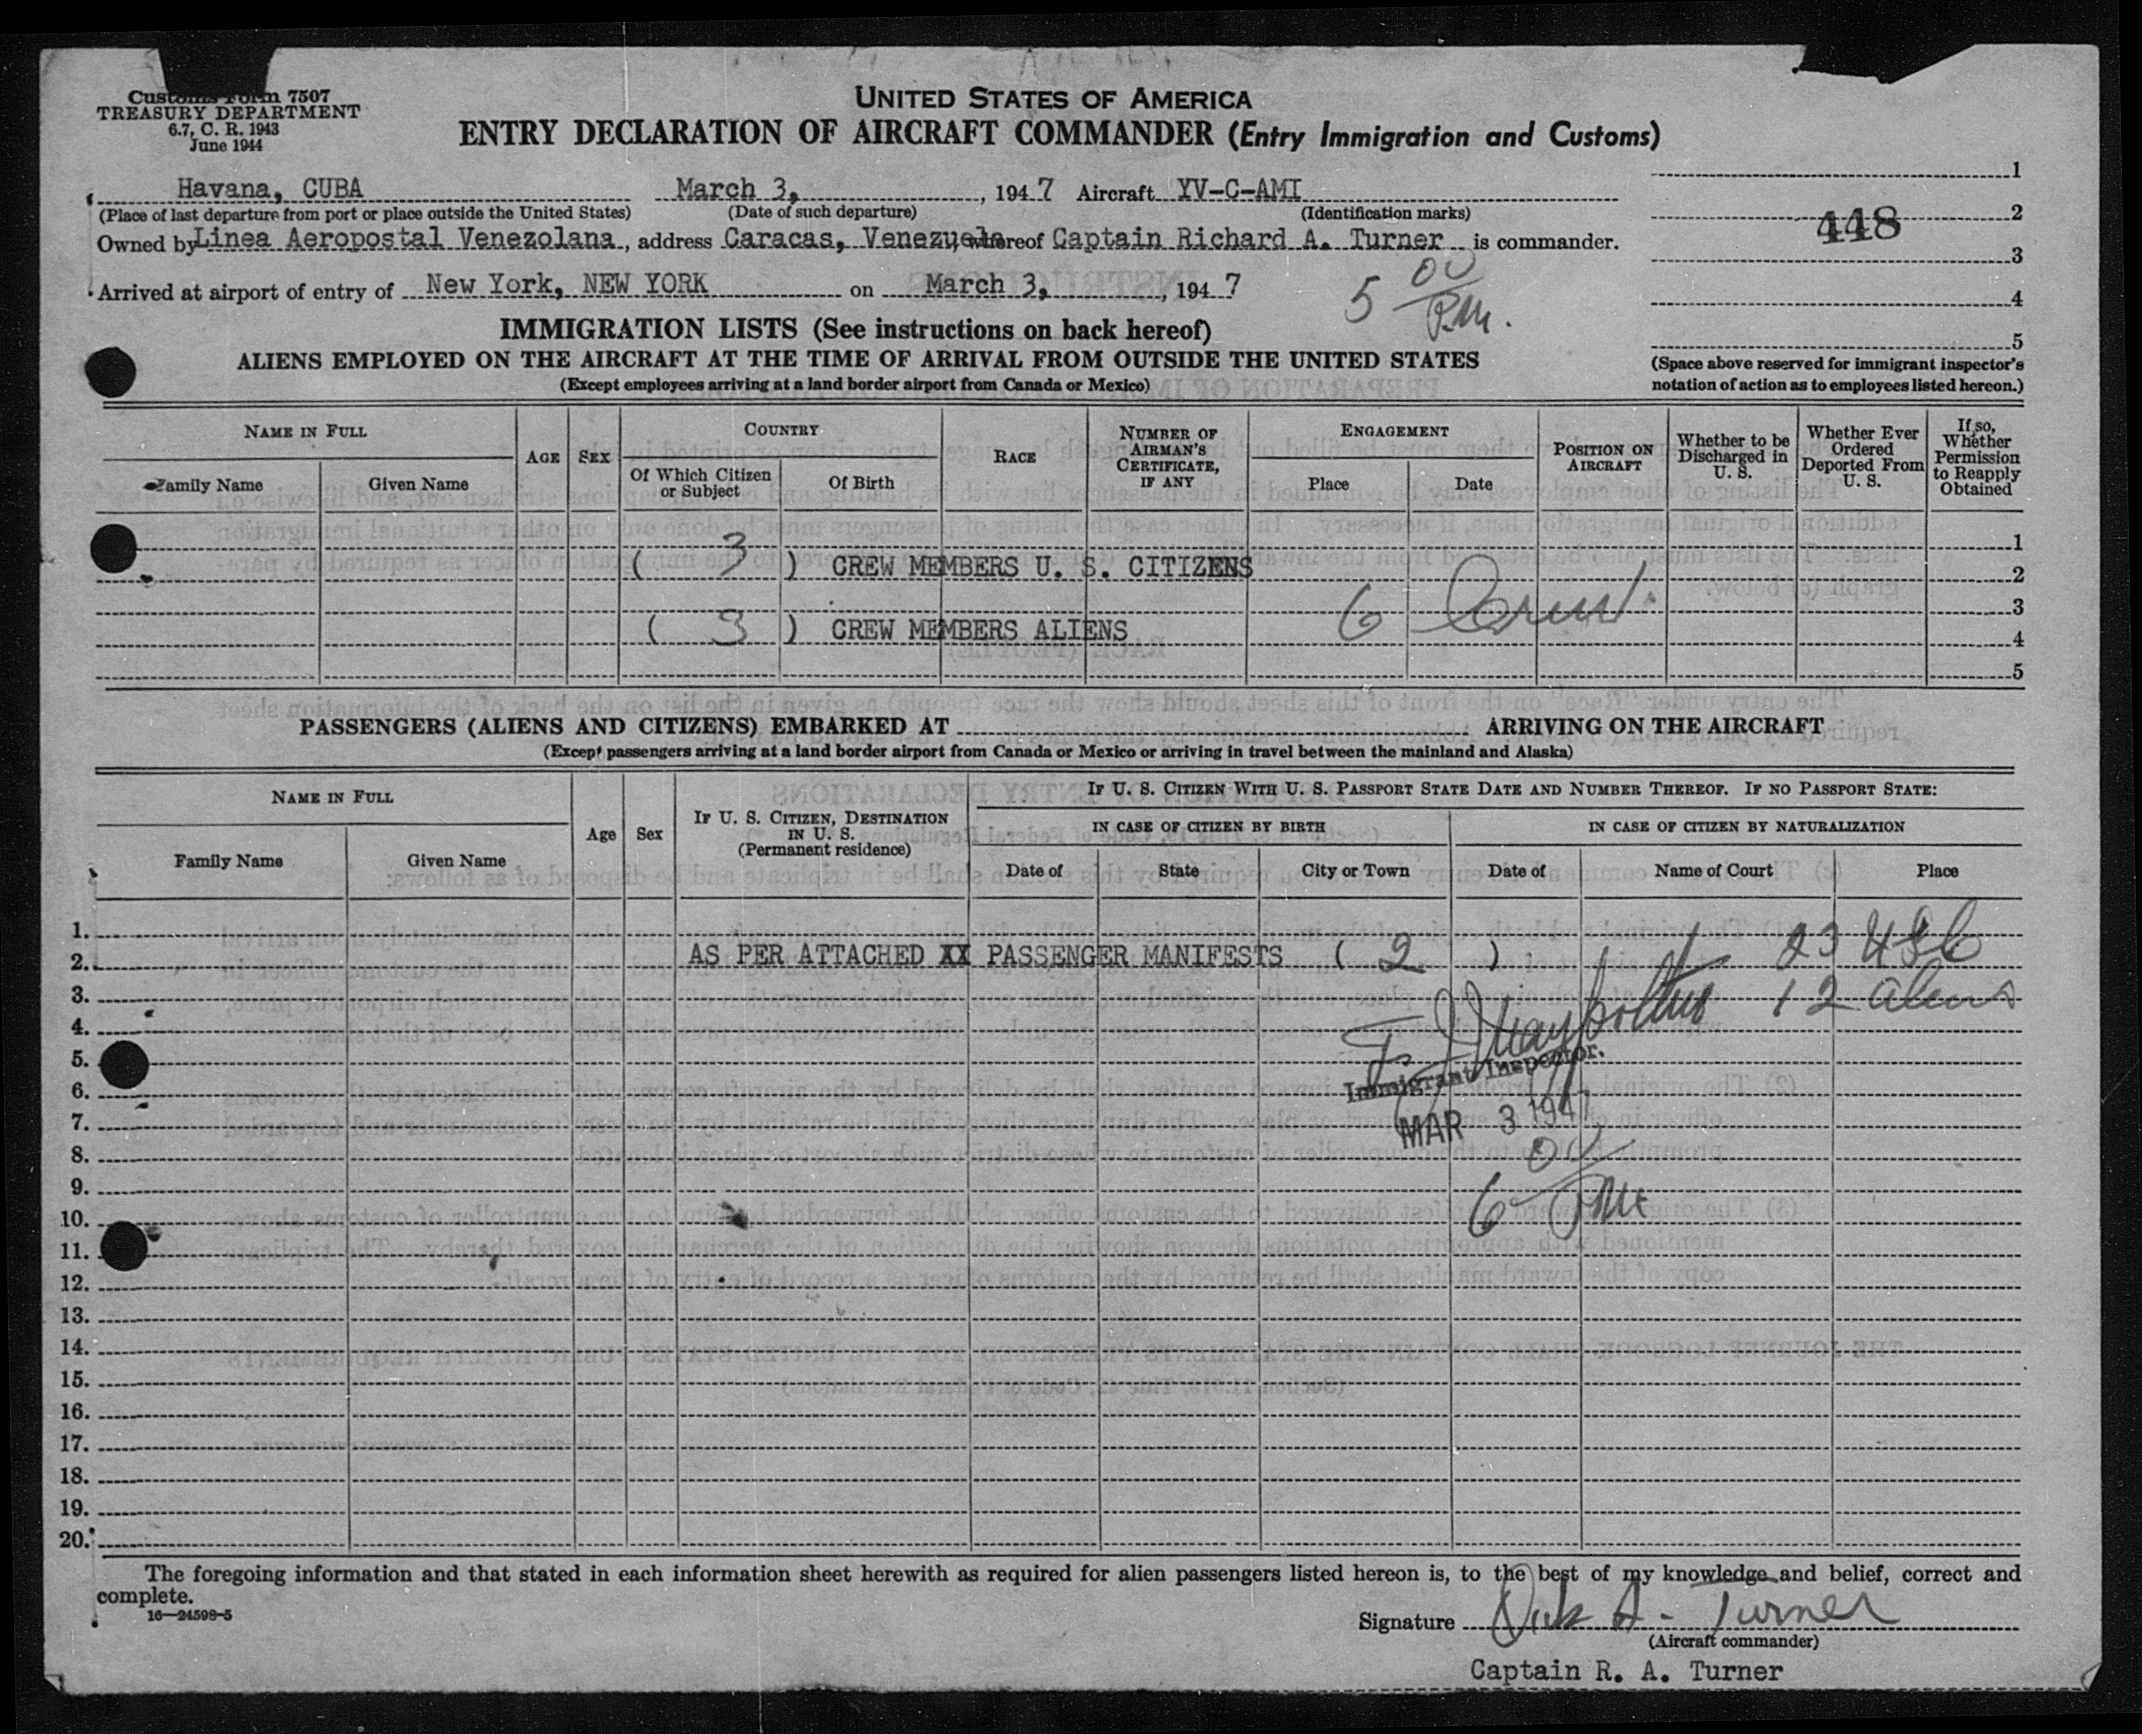 Customs Form 7507
TREASURY DEPARTMENT
6.7, C. R. 1943
June 1944
UNITED STATES OF AMERICA
ENTRY DECLARATION OF AIRCRAFT COMMANDER (Entry Immigration and Customs)
Havana, CUBA March 3, , 1947 Aircraft YV-C-AMI
(Place of last departure from port or place outside the United States) (Date of such departure) (Identification marks)
Owned by Linea Aeropostal Venezolana, address Caracas, Venezuela, whereof Captain Richard A. Turner is commander.
Arrived at airport of entry of New York, NEW YORK on March 3, , 1947
5 00 P.M.
1
2
448
3
4
5
(Space above reserved for immigrant inspector's
notation of action as to employees listed hereon.)
IMMIGRATION LISTS (See instructions on back hereof)
ALIENS EMPLOYED ON THE AIRCRAFT AT THE TIME OF ARRIVAL FROM OUTSIDE THE UNITED STATES
(Except employees arriving at a land border airport from Canada or Mexico)
NAME IN FULL
Family Name Given Name
AGE
SEX
COUNTRY
Of Which Citizen or Subject
Of Birth
RACE
NUMBER OF AIRMAN'S CERTIFICATE, IF ANY
ENGAGEMENT
Place Date
POSITION ON AIRCRAFT
Whether to be Discharged in U. S.
Whether Ever Ordered Deported From U. S.
If so, Whether Permission to Reapply Obtained
1
( 3 ) CREW MEMBERS U. S. CITIZENS 2
3
( 3 ) CREW MEMBERS ALIENS 6 Crew. 4
5
PASSENGERS (ALIENS AND CITIZENS) EMBARKED AT ARRIVING ON THE AIRCRAFT
(Except passengers arriving at a land border airport from Canada or Mexico or arriving in travel between the mainland and Alaska)
NAME IN FULL
Family Name Given Name
Age
Sex
IF U. S. CITIZEN, DESTINATION IN U. S.
(Permanent residence)
IF U. S. CITIZEN WITH U. S. PASSPORT STATE DATE AND NUMBER THEREOF. IF NO PASSPORT STATE:
IN CASE OF CITIZEN BY BIRTH IN CASE OF CITIZEN BY NATURALIZATION
Date of State City or Town Date of Name of Court Place
1.
2. AS PER ATTACHED XX PASSENGER MANIFESTS ( 2 ) 23 USC
3. 12 aliens
4.
5.
Immigrant Inspector.
6.
7. MAR 3 1947
8.
9. 6 00 PM
10.
11.
12.
13.
14.
15.
16.
17.
18.
19.
20.
The foregoing information and that stated in each information sheet herewith as required for alien passengers listed hereon is, to the best of my knowledge and belief, correct and
complete.
16—24598-5
Signature Dick A. Turner
(Aircraft commander)
Captain R. A. Turner